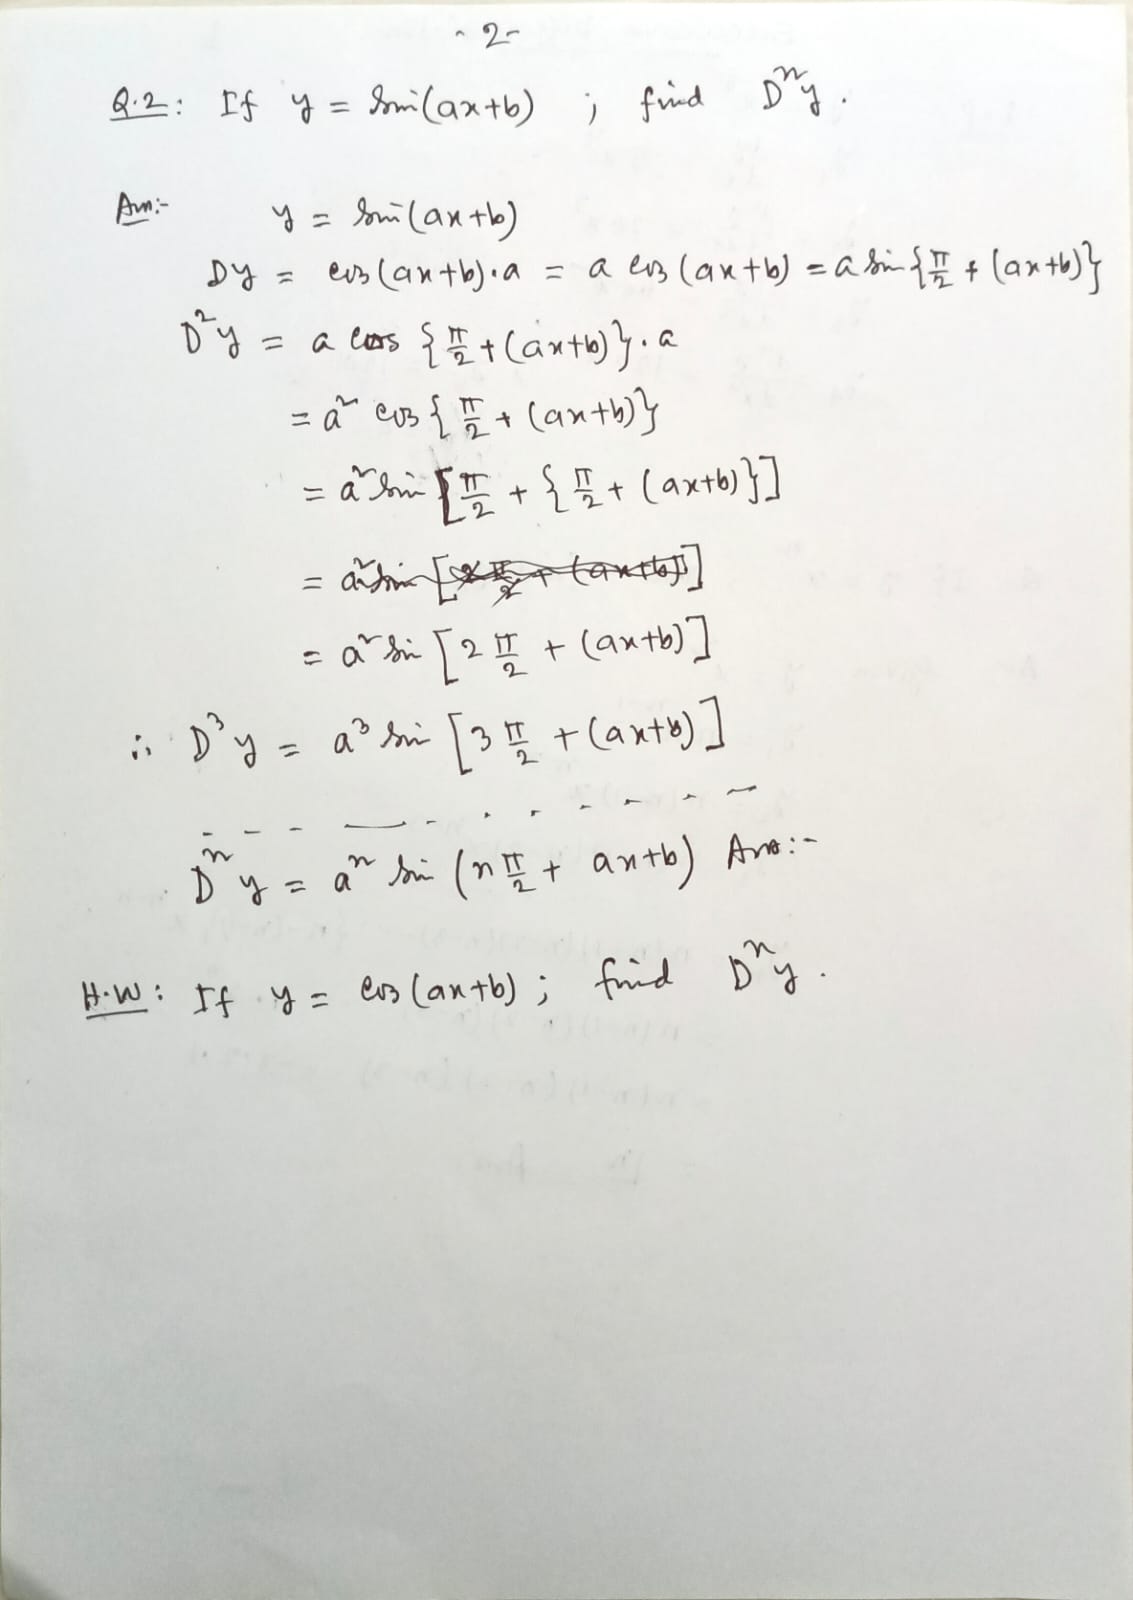 - 2 -
Q.2: If y = sin(ax+b) ; find Dⁿy.
Ans:- y = sin(ax+b)
Dy = cos(ax+b).a = a cos(ax+b) = a sin{π/2 + (ax+b)}
D²y = a cos {π/2 + (ax+b)}.a
= a² cos{π/2 + (ax+b)}
= a² sin[π/2 + {π/2 + (ax+b)}]
= a² sin[2 π/2 + (ax+b)]
= a² sin [2 π/2 + (ax+b)]
∴ D³y = a³ sin [3 π/2 + (ax+b)]
- - - — - . . - - - -
Dⁿy = aⁿ sin (n π/2 + ax+b) Ans:-
H.W: If y = cos(ax+b) ; find Dⁿy.